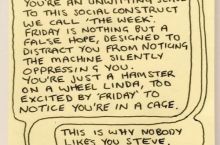 YOU'RE AN UNWITTING
TO THIS SOCIAL CONSTRUCT
WE CALL, 'THE WEEK'.
FRIDAY IS NOTHING BUT A
FALSE HOPE, DESIGNED TO
DISTRACT YOU FROM NOTICING
THE MACHINE SILENTLY
OPPRESSING YOU.
YOU'RE JUST A HAMSTER
ON A WHEEL LINDA, TOO
EXCITED BY 'FRIDAY' TO
NOTICE YOU'RE IN A CAGE.
THIS IS WHY NOBODY
LIKES YOU STEVE.